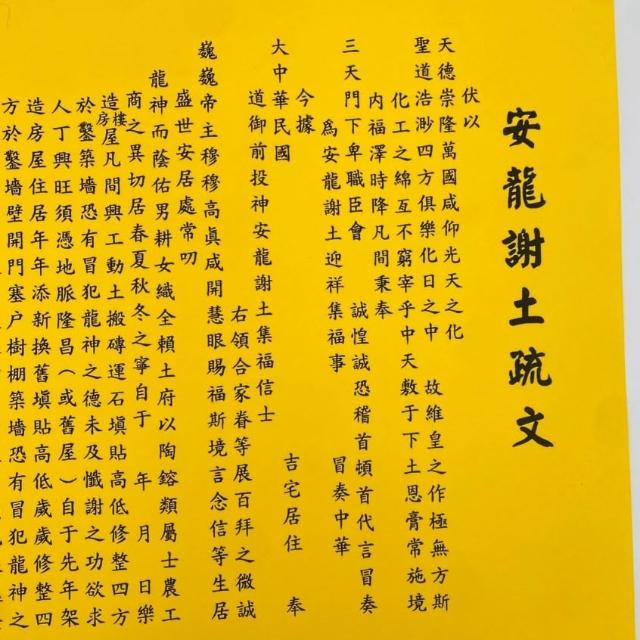 安龍謝土疏文
伏以
天德崇隆萬國咸仰光天之化 故維皇之作極無方斯
聖道浩渺四方俱樂化日之中
化工之綿亙不窮宰乎中天敷于下土恩膏常施境
内福澤時降凡間秉奉
三天門下卑職臣會 誠惶誠恐稽首頓首代言冒奏
爲安龍謝土迎祥集福事 冒奏中華
今據
大中華民國 吉宅居住 奉
道御前投神安龍謝土集福信士
右領合家眷等展百拜之微誠
巍巍帝主穆穆高眞咸開慧眼賜福斯境言念信等生居
盛世安居處常叨
龍神而蔭佑男耕女織全賴土府以陶鎔類屬士農工
商之異切居春夏秋冬之寧自于 年 月 日樂
造房樓屋凡間興工動土搬磚運石填貼高低修整四方
於鑿築墻恐有冒犯龍神之德未及懺謝之功欲求
人丁興旺須憑地脈隆昌(或舊屋)自于先年架
造房屋住居年年添新換舊填貼高低歲歲修整四
方於鑿墻壁開門塞戶樹棚築墻恐有冒犯龍神之